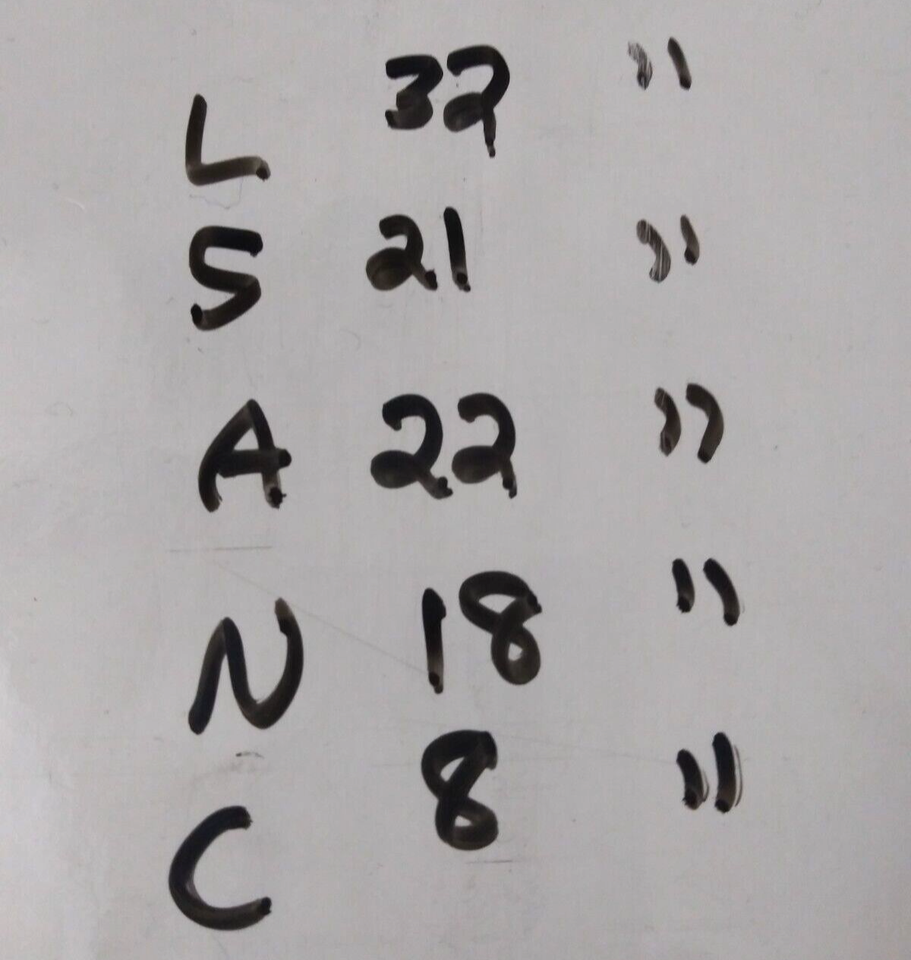 L 32 "
S 21 "
A 22 "
N 18 "
C 8 "